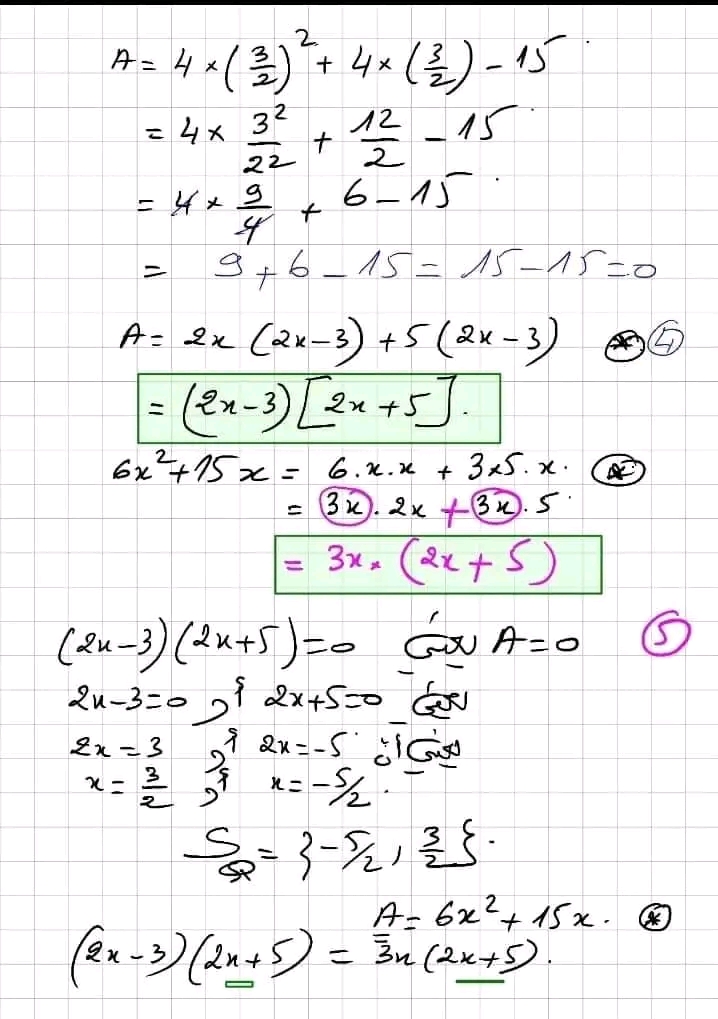 A = 4 × (3/2)² + 4 × (3/2) - 15
= 4 × 3²/2² + 12/2 - 15
= 4 × 9/4 + 6 - 15
= 9 + 6 - 15 = 15 - 15 = 0
A = 2x (2x - 3) + 5 (2x - 3) * ④
= (2x - 3) [2x + 5].
6x² + 15x = 6.x.x + 3×5.x. *
= 3x . 2x + 3x . 5
= 3x × (2x + 5)
(2x - 3)(2x + 5) = 0 يعني A = 0 ⑤
2x - 3 = 0 أو 2x + 5 = 0 يعني
2x = 3 أو 2x = -5 يعني أن
x = 3/2 أو x = -5/2.
S_Q = {-5/2, 3/2}.
A = 6x² + 15x. *
(2x - 3)(2x + 5) = 3x (2x + 5).